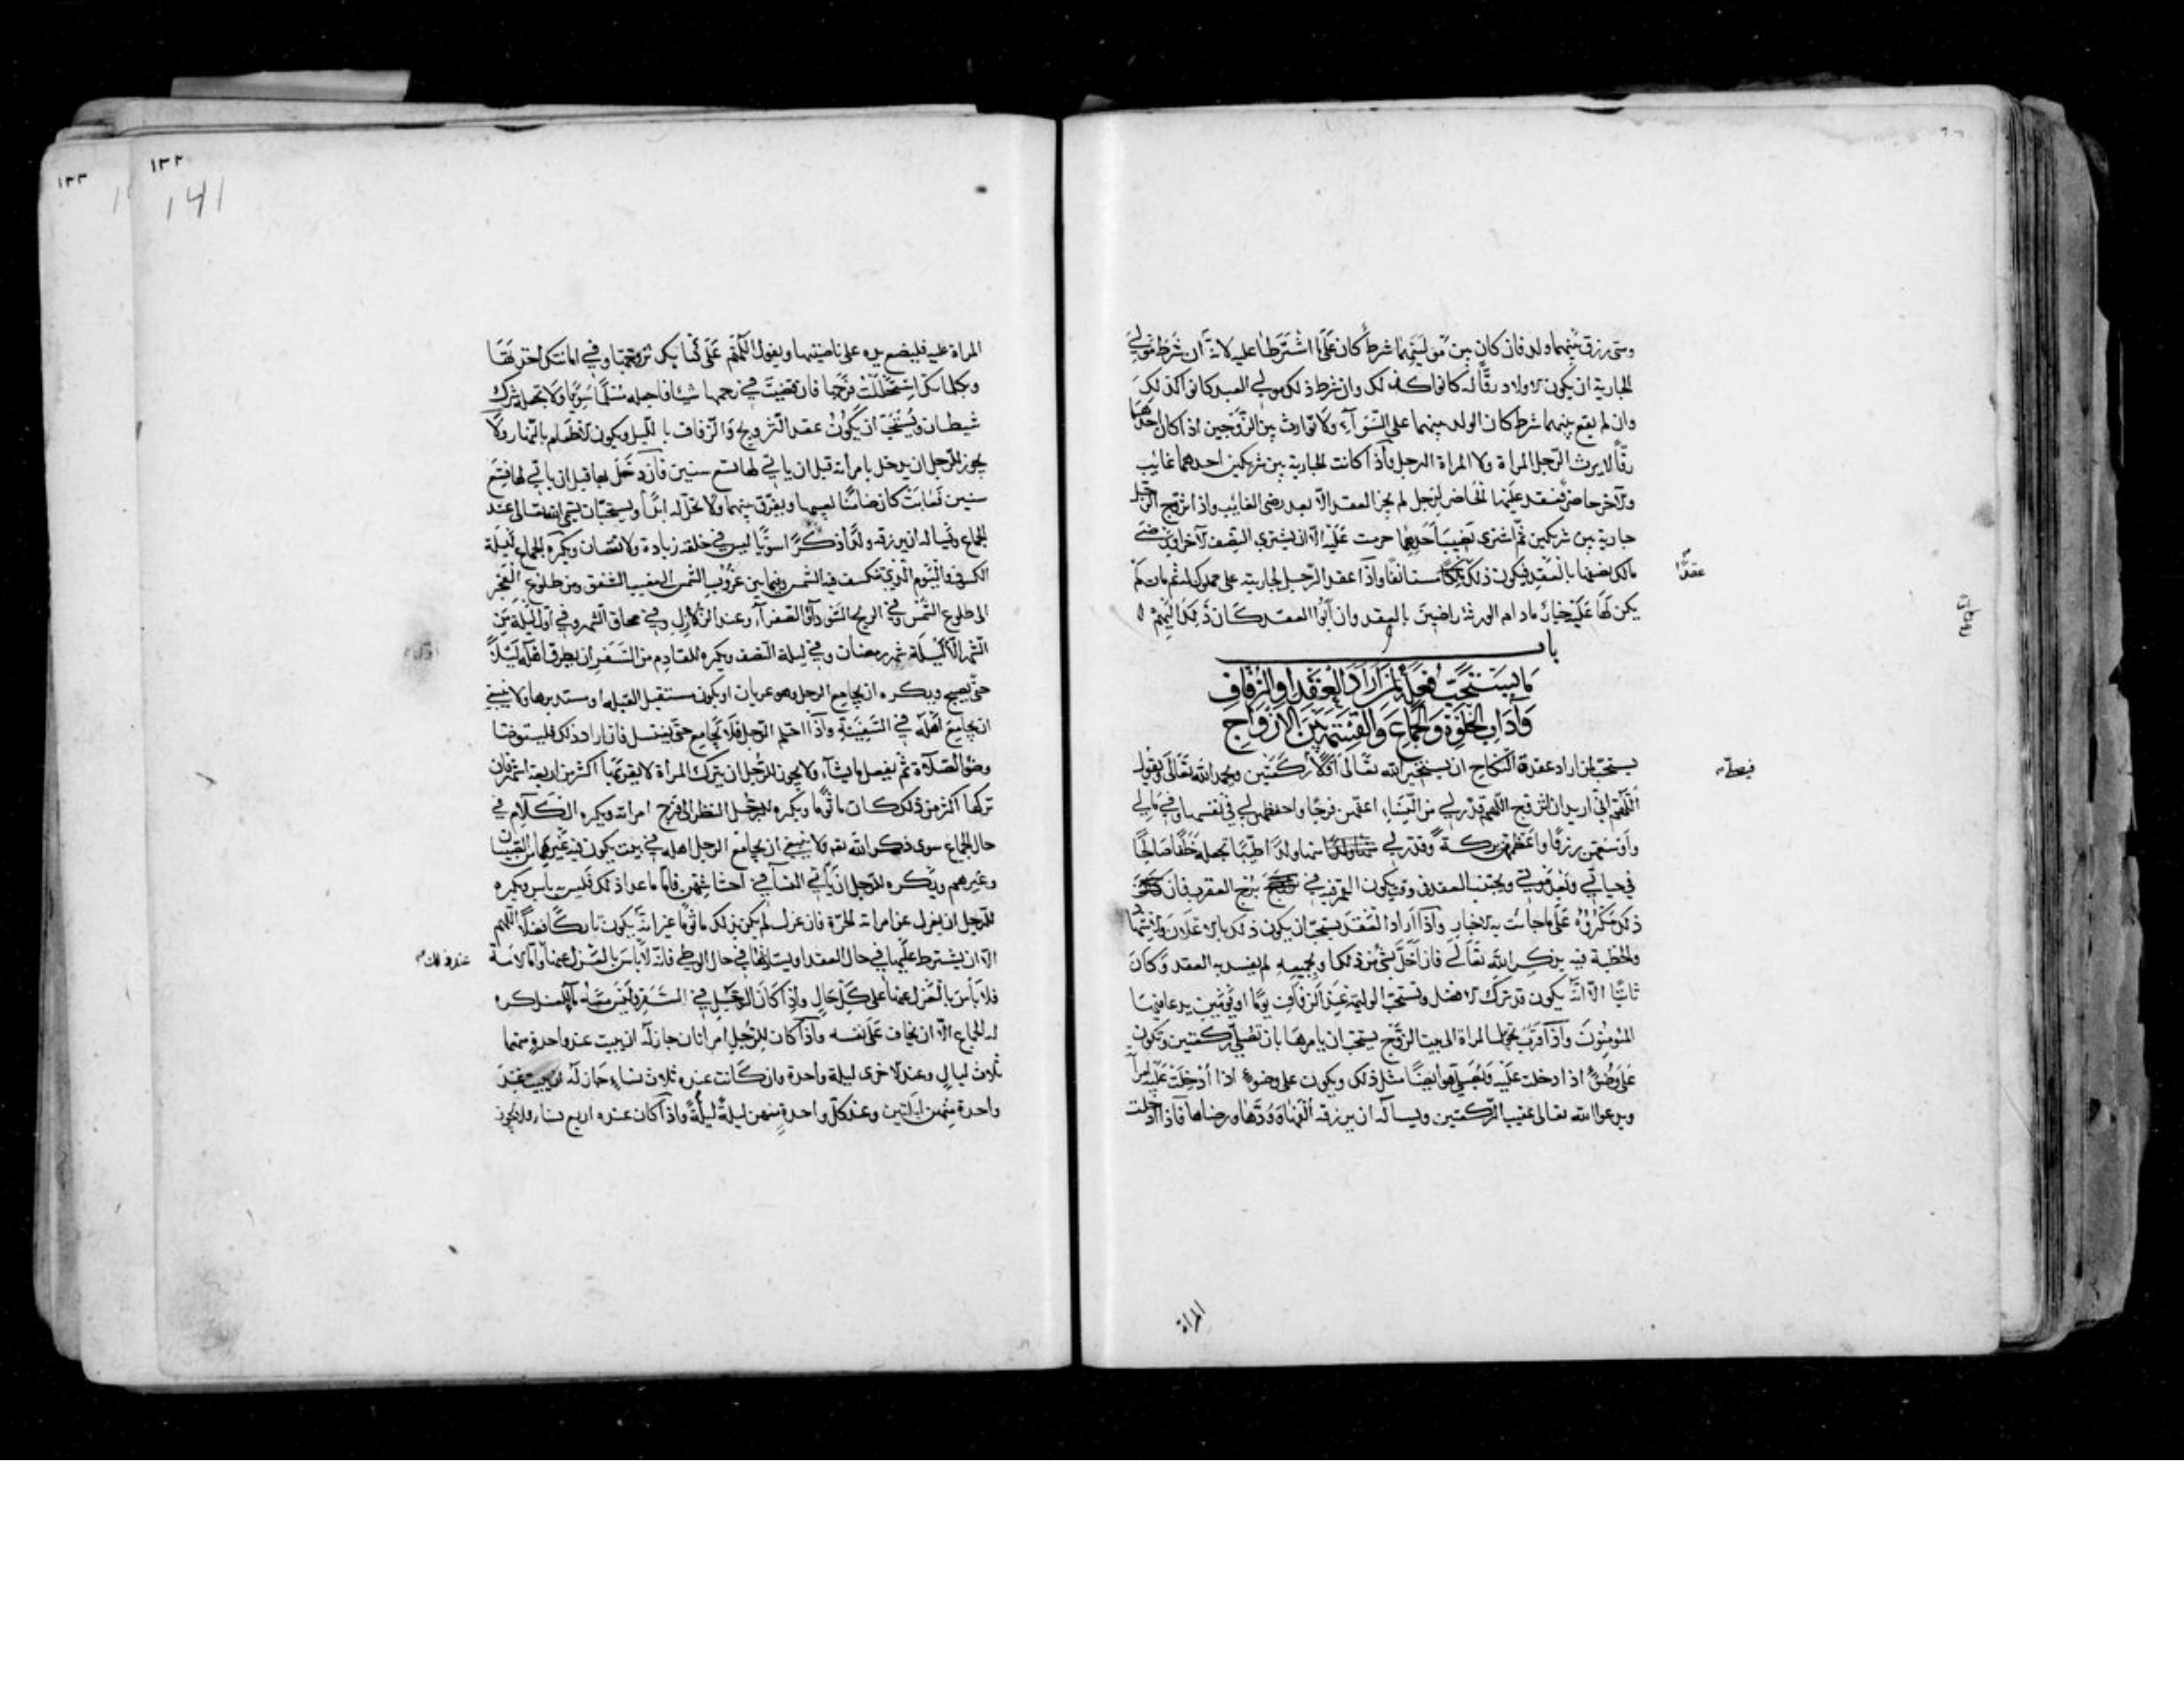 ومتى رزق بينهما ولد فان كان بين موليتهما شرط كان على ما اشترطا عليه لانه ان شرط مولى
الجارية ان يكون الاولاد رقا له كانوا كذلك وان شرط ذلك مولى العبد كانوا كذلك
وان لم يقع بينهما شرط كان الولد بينهما على السوآء ولا توارث بين الزوجين اذا كان احدهما
رقا لا يرث الرجل المراة ولا المراة الرجل واذا كانت الجارية بين شريكين احدهما غايب
والآخر حاضر فعقد عليها الحاضر لرجل لم يجز العقد الا بعد رضى الغايب واذا تزوج الرجل
جارية بين شريكين ثم اشترى نصيب احدهما حرمت عليه الا ان يشتري النصف الآخر او يرضى
مالك نصفها بالعقد فيكون ذلك مستانفا واذا عقد الرجل لجاريته على مملوك له ثم مات لم
عقدا
يكن لها عليه خيار ما دام الورثة راضين بالعقد وان ابوا العقد كان ذلك اليهم
باب
ما يستحب فعله لمن اراد العقد او الزفاف
وآداب الخلوة والجماع والقسمة بين الازواج
يستحب لمن اراد عقدة النكاح ان يستخير الله تعالى اولا ركعتين ويحمد الله تعالى ويقول
فيصلى
اللهم اني اريد ان اتزوج اللهم قدر لي من النساء اعفهن فرجا واحفظهن لي في نفسها وفي مالي
واوسعهن رزقا واعظمهن بركة وقدر لي منها ولدا طيبا تجعله خلفا صالحا
في حياتي وبعد موتي ويجتنب العقد في وقت يكون القمر فيه في برج العقرب فان
ذلك مكروه على ما جاءت به الاخبار واذا اراد العقد يستحب ان يكون ذلك بالاعلان والاشهاد
والخطبة فيه بذكر الله تعالى فان اخل بشئ من ذلك او بجميعه لم يفسد به العقد وكان
ثابتا الا انه يكون قد ترك الافضل وتستحب الوليمة عند الزفاف يوما او يومين يدعا فيها
المؤمنون واذا قرب تحول المراة الى بيت الزوج يستحب ان يامرها بان تصلي ركعتين وتكون
على وضوء اذا ادخلت عليه ويصلي هو ايضا مثل ذلك ويكون على وضوء اذا ادخلت عليه امرأته
ويدعوا الله تعالى عقيب الركعتين ويسأله ان يرزقه الفها وودها ورضاها فاذا ادخلت
المراة
١٣٢
١٣٣
141
المراة عليه فليضع يده على ناصيتها ويقول اللهم على كتابك تزوجتها وفي امانتك اخذتها
وبكلماتك استحللت فرجها فان قضيت في رحمها شيئا فاجعله مسلما سويا ولا تجعله شرك
شيطان ويستحب ان يكون عقد التزويج والزفاف بالليل ويكون الاطعام بالنهار ولا
يجوز للرجل ان يدخل بامرأته قبل ان ياتي لها تسع سنين فان دخل بها قبل ان ياتي لها تسع
سنين فعابت كان ضامنا لعيبها ويفرق بينهما ولا تحل له ابدا ويستحب ان يسمى الله تعالى عند
الجماع ويسأله ان يرزقه ولدا ذكرا سويا ليس في خلقه زيادة ولا نقصان ويكره الجماع ليلة
الكسوف واليوم الذي تنكسف فيه الشمس وفيما بين غروب الشمس الى مغيب الشفق ومن طلوع الفجر
الى طلوع الشمس وفي الريح السوداء والصفرآء وعند الزلازل وفي محاق الشهر وفي اول ليلة من
الشهر الا ليلة شهر رمضان وفي ليلة النصف ويكره للقادم من السفر ان يطرق اهله ليلا
حتى يصبح ويكره ان يجامع الرجل وهو عريان او يكون مستقبل القبلة او مستدبرها ولا ينبغي
ان يجامع اهله في السفينة واذا احتلم الرجل فلا يجامع حتى يغتسل فان اراد ذلك فليتوضا
وضوء الصلاة ثم يفعل ما يشآء ولا يجوز للرجل ان يترك المرأة لا يقربها اكثر من اربعة اشهر فان
تركها اكثر من ذلك كان ماثوما ويكره للرجل النظر الى فرج امراته ويكره الكلام في
حال الجماع سوى ذكر الله تع ولا ينبغي ان يجامع الرجل اهله في بيت يكون فيه غيرهما من الصبيان
وغيرهم ويكره للرجل ان يأتي النسآء في احشاشهن فاما ما عدا ذلك فليس به باس ويكره
للرجل ان يعزل عن امراته الحرة فان عزل لم يكن بذلك ماثوما غير انه يكون تاركا فضلا اللهم
الا ان يشترط عليها في حال العقد او يستاذنها في حال الوطي فانه لا باس بالعزل عنها واما الامة
فلا بأس بالعزل عنها على كل حال واذا كان الرجل في السفر وليس معه مآء للغسل كره
له الجماع الا ان يخاف على نفسه واذا كان للرجل امراتان جاز له ان يبيت عند واحدة منهما
ثلاث ليال وعند الاخرى ليلة واحدة وان كانت عنده ثلاث نساء جاز له ان يبيت عند
واحدة منهن ليلتين وعند كل واحدة منهن ليلة ليلة واذا كان عنده اربع نساء فلا يجوز